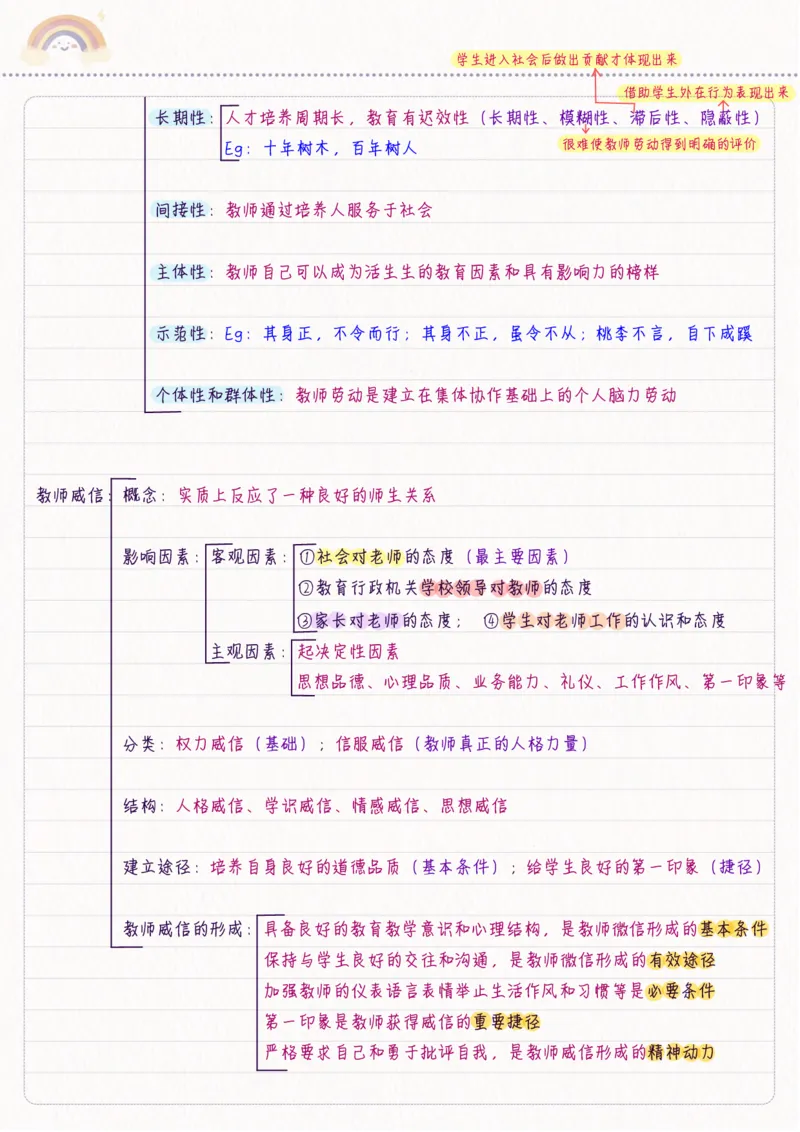 学生进入社会后做出贡献才体现出来
借助学生外在行为表现出来
长期性：人才培养周期长，教育有迟效性（长期性、模糊性、滞后性、隐蔽性）
Eg：十年树木，百年树人
很难使教师劳动得到明确的评价
间接性：教师通过培养人服务于社会
主体性：教师自己可以成为活生生的教育因素和具有影响力的榜样
示范性：Eg：其身正，不令而行；其身不正，虽令不从；桃李不言，自下成蹊
个体性和群体性：教师劳动是建立在集体协作基础上的个人脑力劳动
教师威信：概念：实质上反应了一种良好的师生关系
影响因素：客观因素：①社会对老师的态度（最主要因素）
②教育行政机关学校领导对教师的态度
③家长对老师的态度； ④学生对老师工作的认识和态度
主观因素：起决定性因素
思想品德、心理品质、业务能力、礼仪、工作作风、第一印象等
分类：权力威信（基础）；信服威信（教师真正的人格力量）
结构：人格威信、学识威信、情感威信、思想威信
建立途径：培养自身良好的道德品质（基本条件）；给学生良好的第一印象（捷径）
教师威信的形成：具备良好的教育教学意识和心理结构，是教师微信形成的基本条件
保持与学生良好的交往和沟通，是教师微信形成的有效途径
加强教师的仪表语言表情举止生活作风和习惯等是必要条件
第一印象是教师获得威信的重要捷径
严格要求自己和勇于批评自我，是教师威信形成的精神动力